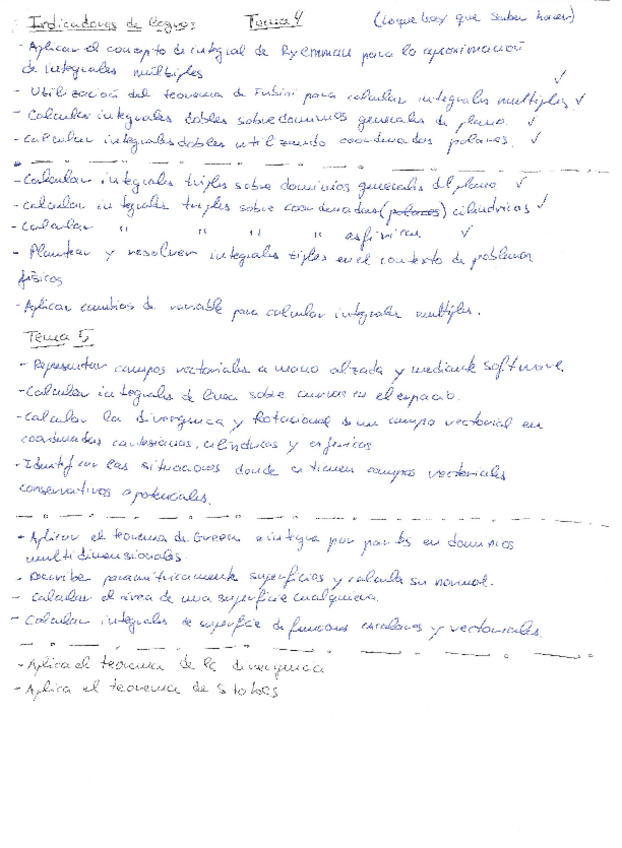 Indicadores de logros: Tema 4 (Loque hay que saber hacer)
- Aplicar el concepto de integral de Ryemman para la aproximación
de integrales múltiples
- Utilización del teorema de Fubini para calcular integrales multiples. ✓
- Calcular integrales dobles sobre dominios generales de plano. ✓
- Calcular integrales dobles utilizando coordenadas polares. ✓
- Calcular integrales triples sobre dominios generales del plano ✓
- Calcular integrales triples sobre coordenadas (polares) cilíndricas ✓
- Calcular " " " " esféricas ✓
- Plantear y resolver integrales triples en el contexto de problemas
físicos
- Aplicar cambios de variable para calcular integrales multiples.
Tema 5
- Representar campos vectoriales a mano alzada y mediante software.
- Calcular integrales de linea sobre curvas en el espacio.
- Calcular la divergencia y Rotacional de un campo vectorial en
coordenadas cartesianas, cilíndricas y esfericas
- Identificar las situaciones donde se tienen campos vectoriales
conservativos o potenciales.
- Aplicar el teorema de Green e integra por partes en dominios
multidimensionales.
- Describe paramétricamente superficies y calcula su normal.
- Calcular el área de una superficie cualquiera.
- Calcular integrales de superficie de funciones escalares y vectoriales.
- Aplica el teorema de la divergencia
- Aplica el teorema de Stokes